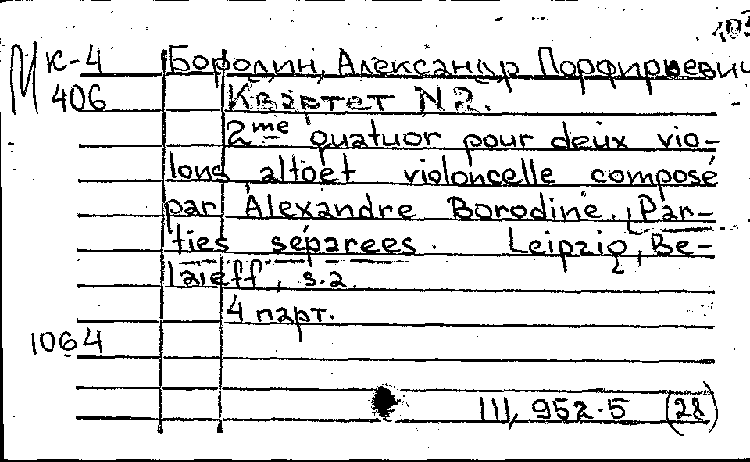 103
М К-4 Бородин, Александр Порфирьевич
406 Квартет N 2.
2me quatuor pour deux vio-
lons alto et violoncelle composé
par Alexandre Borodine. Par-
ties séparees. Leipzig, Be-
laieff, s.a.
4 парт.
1064
III, 952.5 (28)